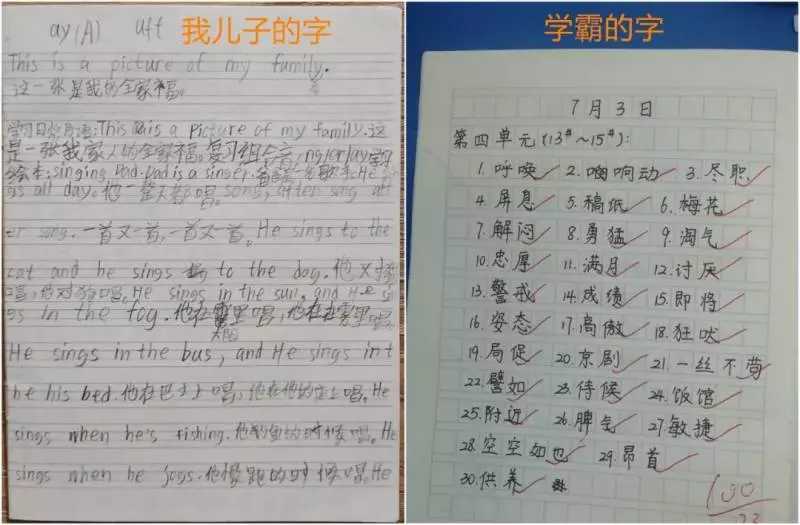 我儿子的字
ay(A) uft
This is a picture of my family.
这一张是我的全家福。
学习日教英语:This is a picture of my family.这
是一张我家人的全家福。复习组合音,ng/er/ay
绘本:singing Dad.Dad is a singer.爸爸是一名歌手.He
s all day.他一整天都唱。song, after song aft
er song.一首又一首,一首又一首。He sings to the
cat and he sings to the dog.他对猫
唱,他对狗唱。He sings in the sun, and He si
gs in the fog.他在里唱,他在雾里唱。
太阳
He sings in the bus, and He sings int
he his bed.他在巴士上唱,他在他的床上唱。He
sings when he's fishing.他钓鱼的时候唱。He
sings when he jogs.他慢跑的时候唱。He
学霸的字
7月3日
第四单元(13#~15#):
1.呼唤 2.响动 3.尽职
4.屏息 5.稿纸 6.梅花
7.解闷 8.勇猛 9.淘气
10.忠厚 11.满月 12.讨厌
13.警戒 14.成绩 15.即将
16.姿态 17.高傲 18.狂吠
19.局促 20.京剧 21.一丝不苟
22.譬如 23.侍候 24.饭馆
25.附近 26.脾气 27.敏捷
28.空空如也 29.昂首
30.供养
100